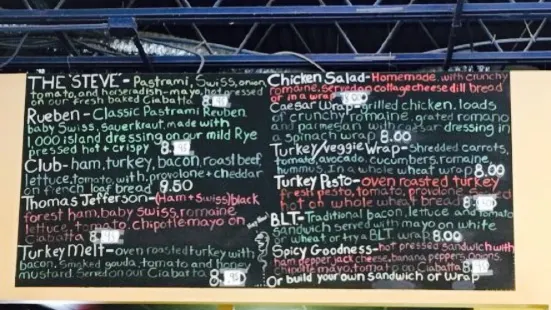 THE 'STEVE' - Pastrami, Swiss, onion
tomato, and horseradish-mayo, hot pressed
on our fresh baked Ciabatta 8.
Rueben - Classic Pastrami Reuben
baby Swiss, Sauerkraut, made with
1,000 island dressing on our mild Rye
pressed hot + crispy 8.
Club - ham, turkey, bacon, roast beef,
lettuce, tomato, with, provolone + cheddar
on french loaf bread 9.50
Thomas Jefferson - (Ham + Swiss) black
forest ham, baby Swiss, romaine
lettuce, tomato, chipotle mayo on
Ciabatta 8.
Turkey Melt - oven roasted turkey with
bacon, Smoked gouda, tomato and honey
mustard Served on our Ciabatta 8.
Chicken Salad - Homemade, with crunchy
romaine, served on cottage cheese dill bread
or in a wrap
Caesar Wrap - grilled chicken, loads
of crunchy romaine, grated romano
and parmesan with caesar dressing in
a spinach wrap 8.00
Turkey/Veggie Wrap - Shredded carrots,
tomato, avocado, cucumbers, romaine,
hummus, In a whole wheat wrap 8.00
Turkey Pesto - oven roasted turkey
fresh pesto, tomato, provolone
hot on whole wheat bread 8.50
BLT - Traditional bacon, lettuce and tomato
sandwich served with mayo on white
or wheat or try A BLT wrap 8.00
Spicy Goodness - hot pressed sandwich with
ham, pepper jack cheese, banana peppers, onions,
chipotle mayo, tomato on Ciabatta 8.
Or build your own Sandwich or Wrap